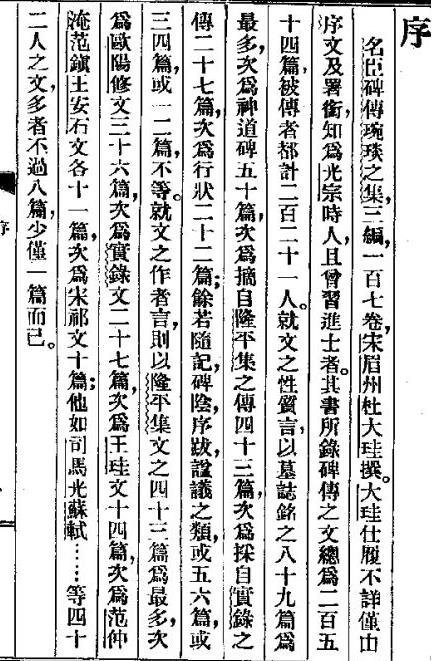 序
名臣碑傳琬琰之集，三編，一百七卷，宋眉州杜大珪撰。大珪仕履不詳，僅由
序文及署銜，知爲光宗時人，且曾習進士者。其書所錄碑傳之文總爲二百五
十四篇，被傳者都計二百二十一人。就文之性質言，以墓誌銘之八十九篇爲
最多，次爲神道碑五十篇，次爲摘自隆平集之傳四十三篇，次爲採自實錄之
傳二十七篇，次爲行狀二十二篇；餘若隨記，碑陰，序跋，諡議之類，或五六篇，或
三四篇，或一二篇，不等。就文之作者言，則以隆平集文之四十三篇爲最多，次
爲歐陽修文三十六篇，次爲實錄文二十七篇，次爲王珪文十四篇，次爲范仲
淹范鎮王安石文各十一篇，次爲宋祁文十篇；他如司馬光蘇軾……等四十
二人之文，多者不過八篇，少僅一篇而已。
序